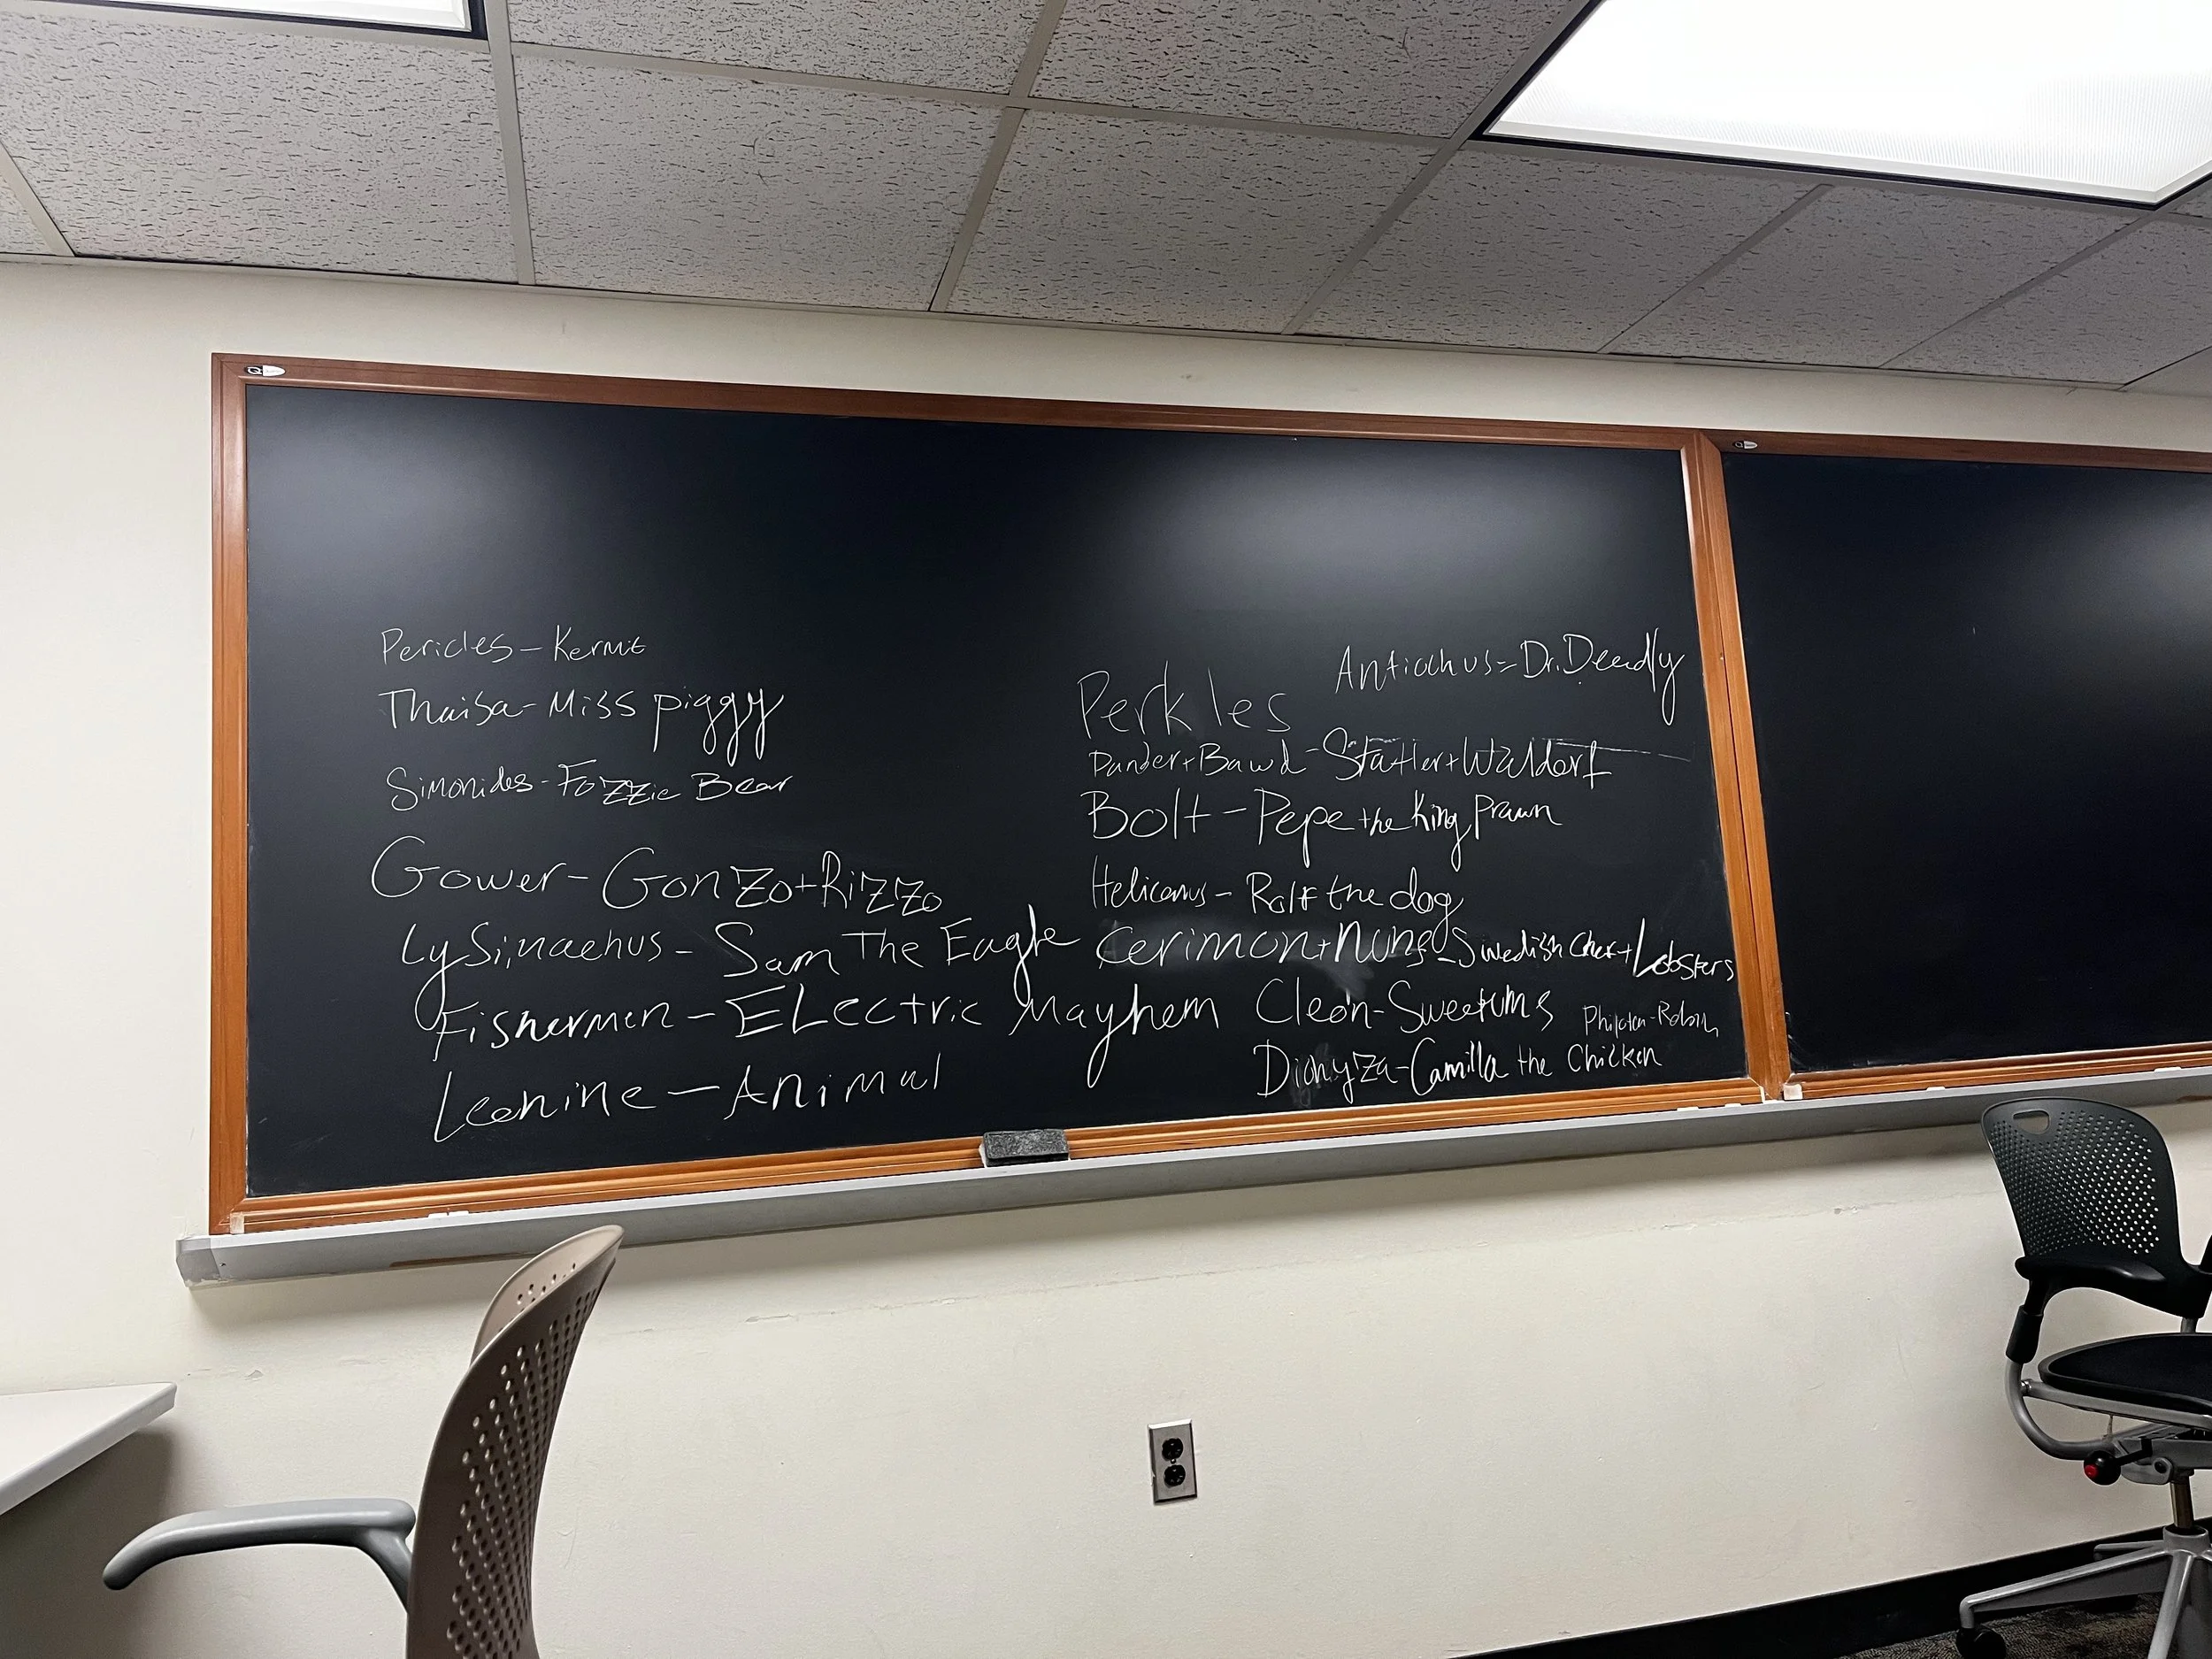 Pericles - Kermit
Thaisa - Miss piggy
Simonides - Fozzie Bear
Gower - Gonzo + Rizzo
Lysimachus - Sam The Eagle
Fishermen - Electric Mayhem
Leonine - Animal
Antiochus = Dr. Deadly
Perkles
Pander + Bawd - Statler + Waldorf
Bolt - Pepe the King Prawn
Helicanus - Rolf the dog
Cerimon + Nuns - Swedish Chef + Lobsters
Cleon - Sweetums
Philoten - Robin
Dionyza - Camilla the Chicken